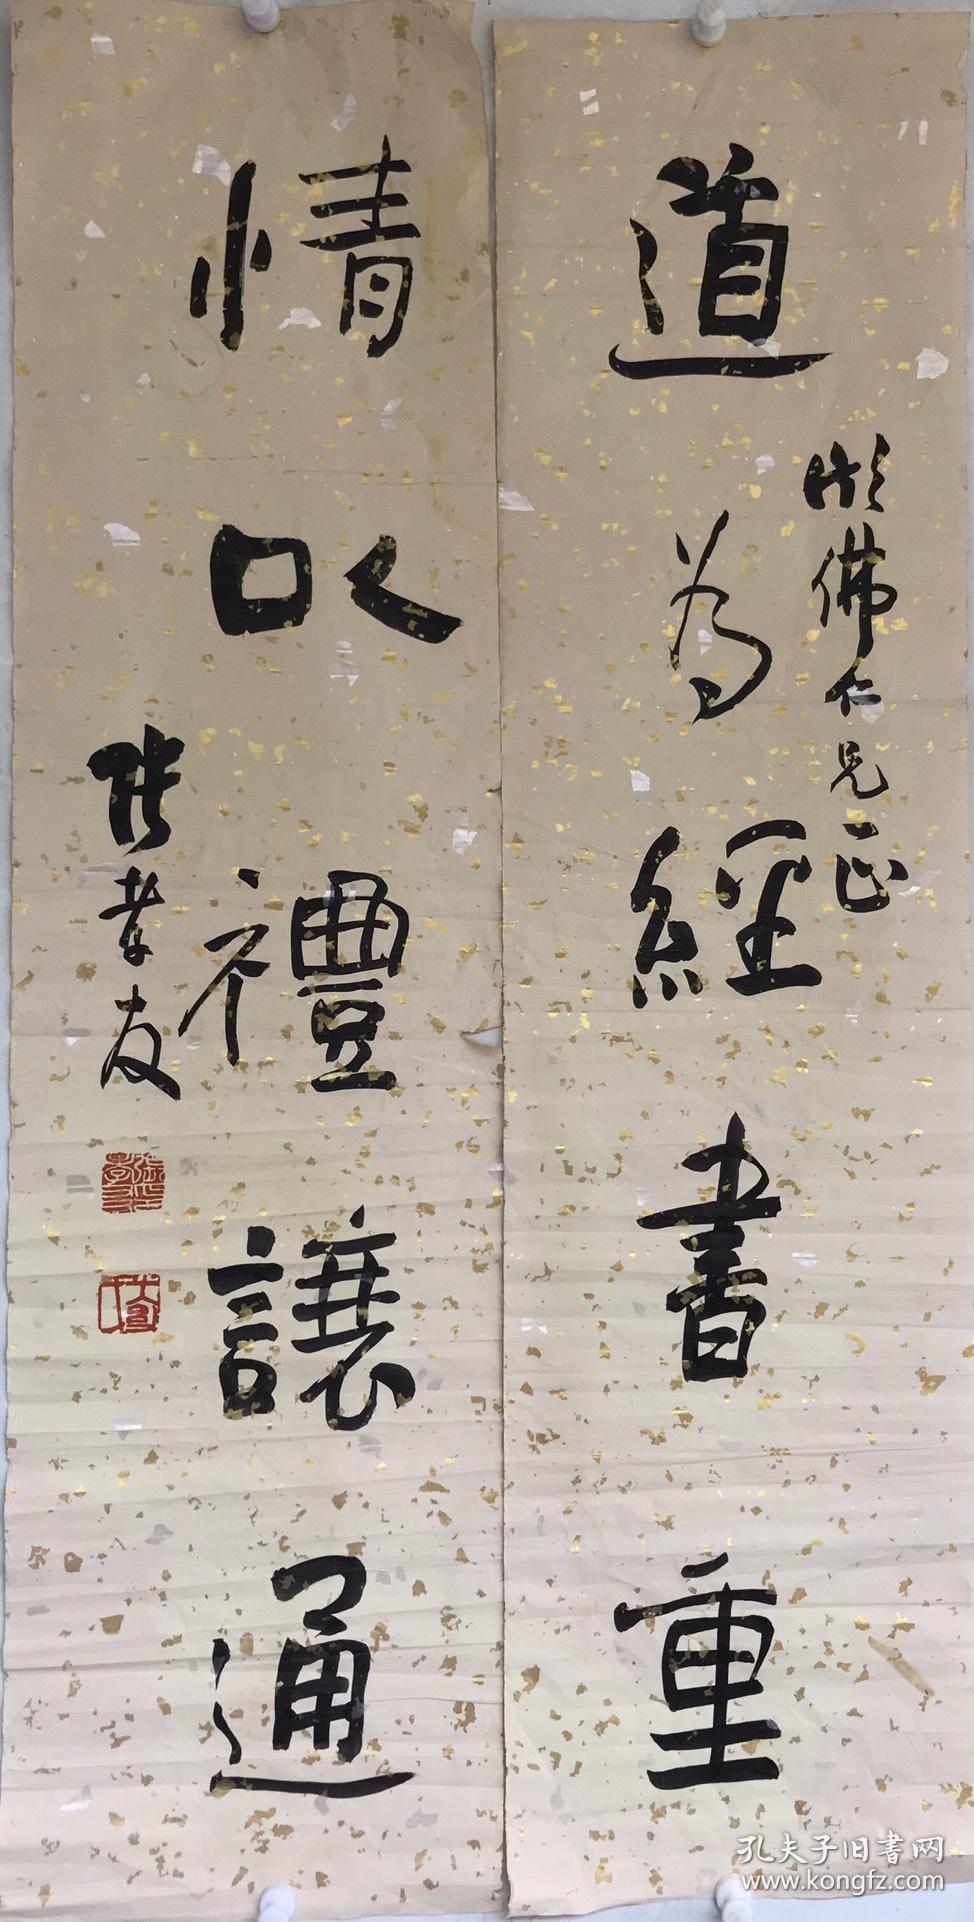 道為經書重
佛仁兄正
情以禮讓通
張孝友
孔夫子旧書网
www.kongfz.com